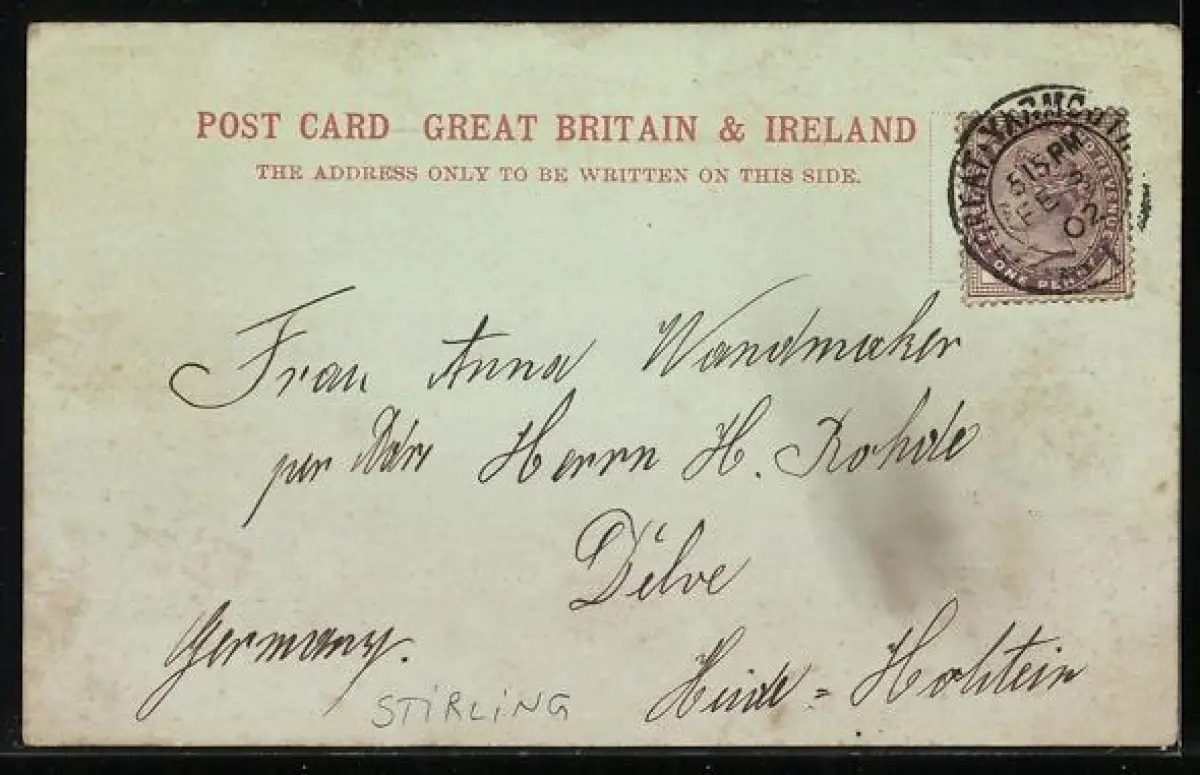 POST CARD GREAT BRITAIN & IRELAND
THE ADDRESS ONLY TO BE WRITTEN ON THIS SIDE.
GREAT YARMOUTH
5 15 PM
FE
02
ONE PENNY
Frau Anna Wandmaker
per Adr Herrn H. Rohde
Delve
Germany.
Heide = Holstein
STiRLiNG